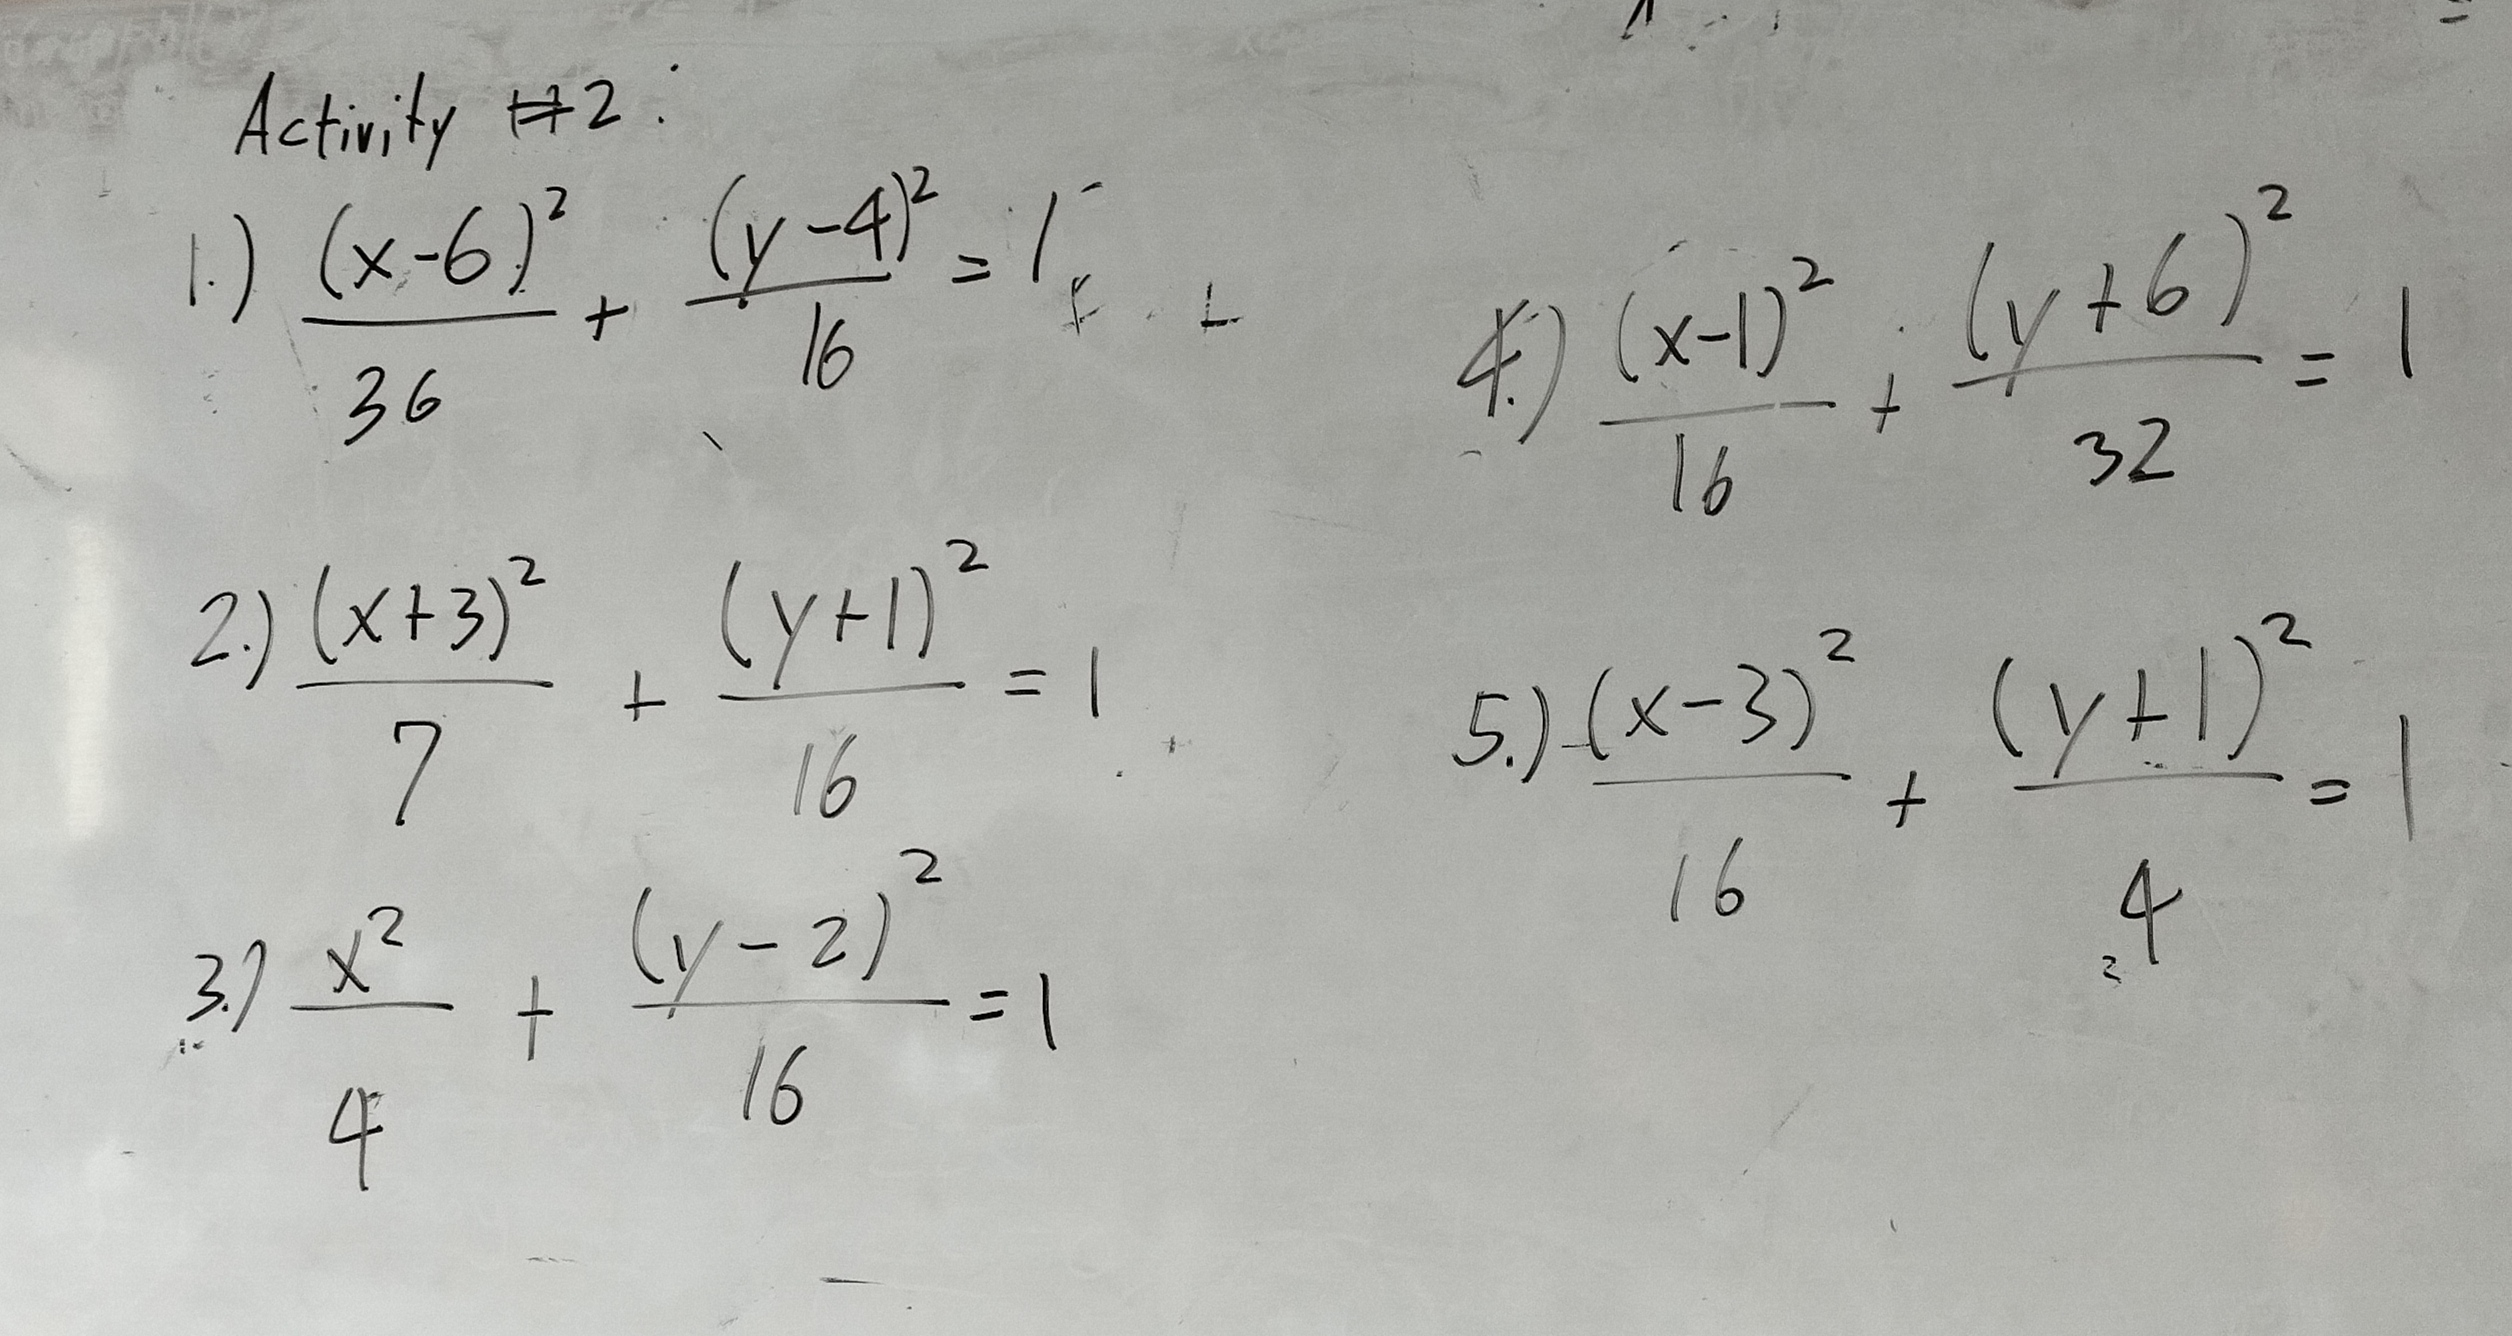 Activity #2:
1.) (x-6)²/36 + (y-4)²/16 = 1
2.) (x+3)²/7 + (y+1)²/16 = 1
3.) x²/4 + (y-2)²/16 = 1
4.) (x-1)²/16 + (y+6)²/32 = 1
5.) (x-3)²/16 + (y+1)²/4 = 1